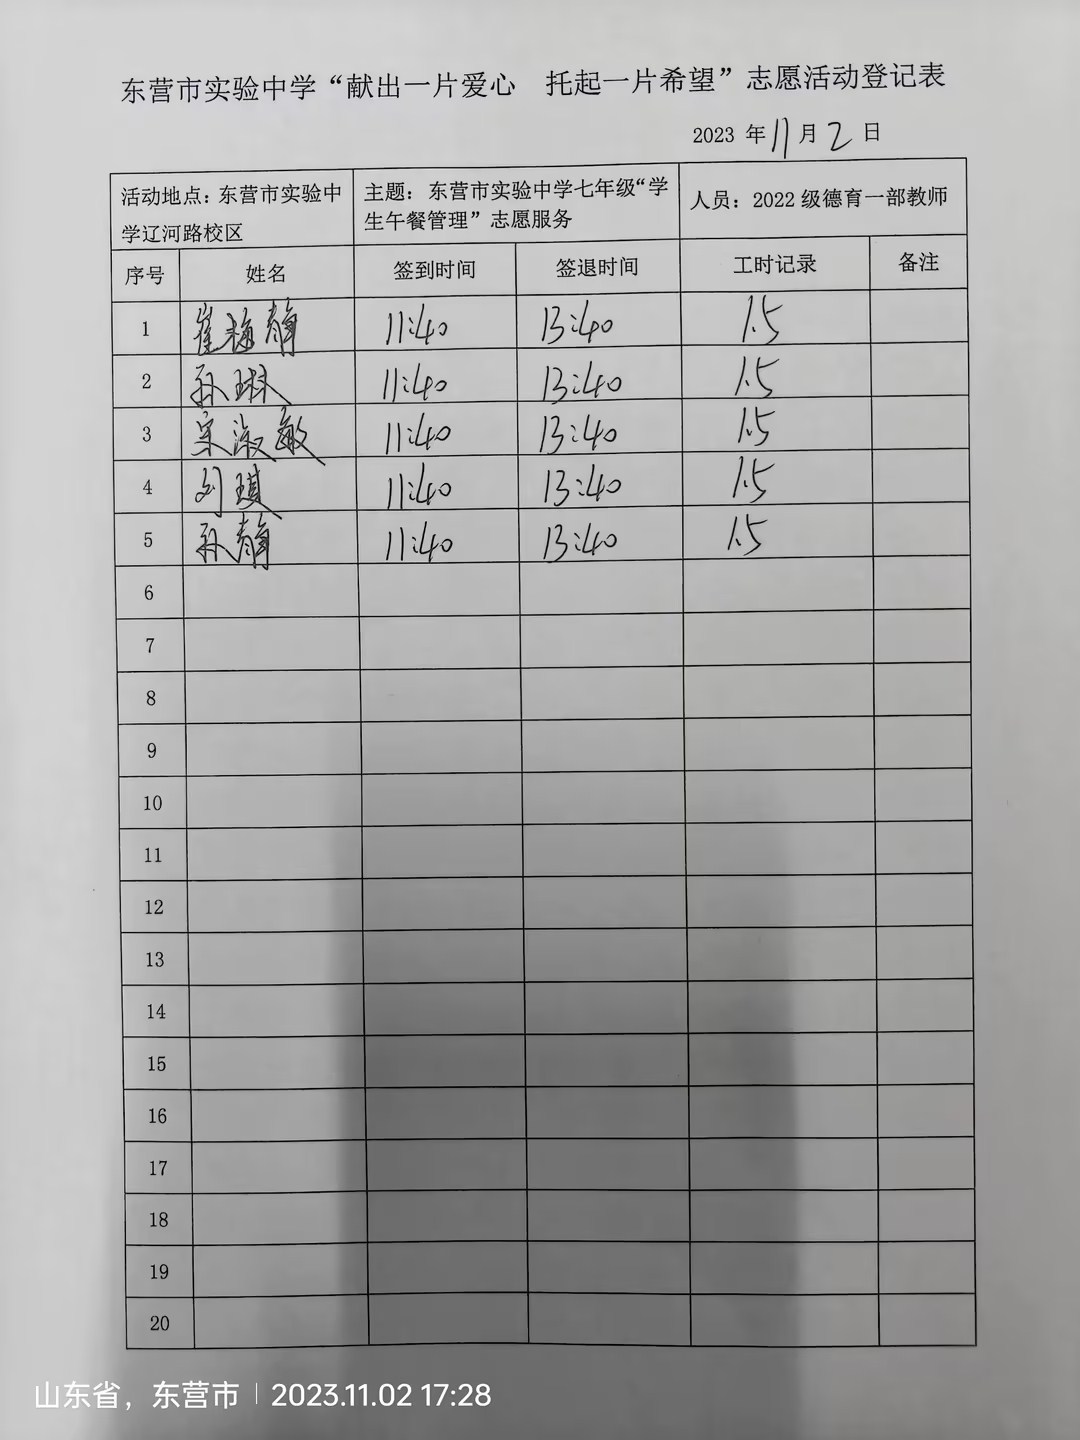 东营市实验中学“献出一片爱心 托起一片希望”志愿活动登记表
2023 年 11 月 2 日
活动地点：东营市实验中学辽河路校区 主题：东营市实验中学七年级“学生午餐管理”志愿服务 人员：2022 级德育一部教师
序号 姓名 签到时间 签退时间 工时记录 备注
1 崔梅静 11:40 13:40 1.5
2 孙琳 11:40 13:40 1.5
3 宋淑敏 11:40 13:40 1.5
4 刘琪 11:40 13:40 1.5
5 孙静 11:40 13:40 1.5
6
7
8
9
10
11
12
13
14
15
16
17
18
19
20
山东省，东营市 2023.11.02 17:28